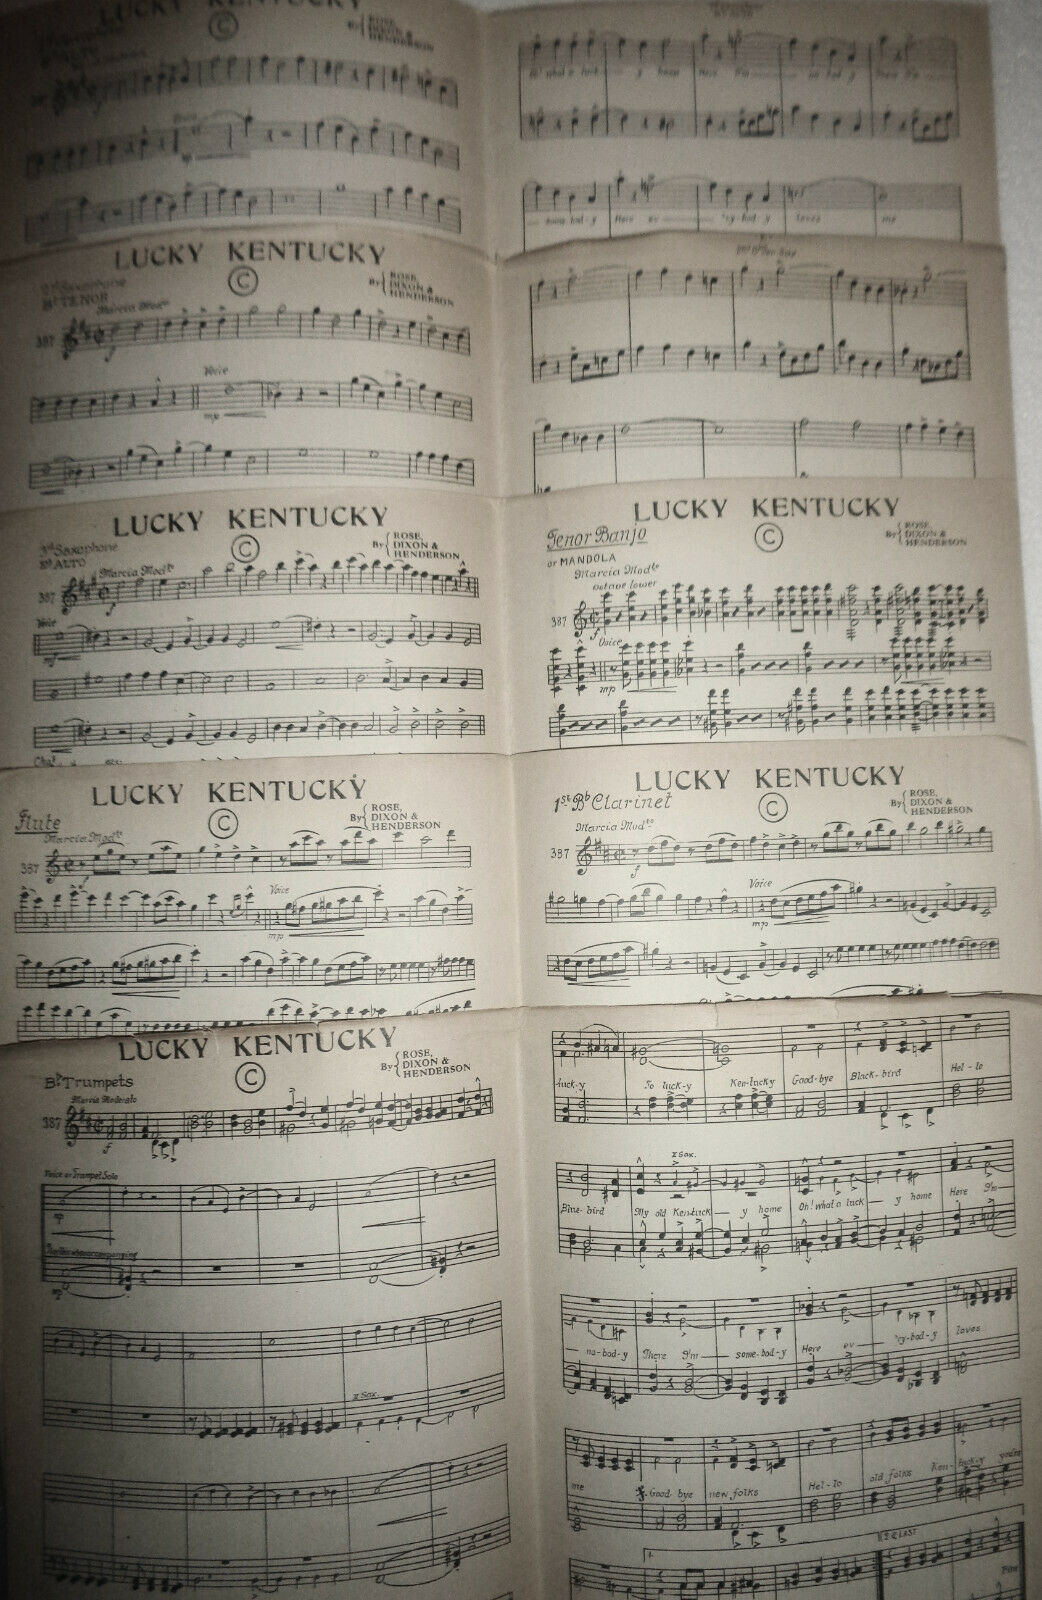 LUCKY KENTUCKY
©
By { ROSE, DIXON & HENDERSON
some-bod-y Here ev 'ry-bod-y loves me
LUCKY KENTUCKY
©
By { ROSE, DIXON & HENDERSON
Saxophone
Bb TENOR
Marcia Modto
387
f
Voice
mp
LUCKY KENTUCKY
©
By { ROSE, DIXON & HENDERSON
3rd Saxophone
Eb ALTO
Marcia Modto
387
f
Voice
mf
LUCKY KENTUCKY
©
By { ROSE, DIXON & HENDERSON
Tenor Banjo
or MANDOLA
Marcia Modto
octave lower
387
f
Voice
mp
LUCKY KENTUCKY
©
By { ROSE, DIXON & HENDERSON
Flute
Marcia Modto
387
f
Voice
mp
LUCKY KENTUCKY
©
By { ROSE, DIXON & HENDERSON
1st Bb Clarinet
Marcia Modto
387
f
Voice
mp
LUCKY KENTUCKY
©
By { ROSE, DIXON & HENDERSON
Bb Trumpets
Marcia Moderato
387
f
Voice or Trumpet Solo
mp
Play this when accompanying
mp
X Sax.
luck-y So luck-y Ken-tucky Good-bye Black-bird Hel-lo
X Sax.
Blue-bird My old Kentuck-y home Oh! what a luck-y home Here I'm
no-bod-y There I'm some-bod-y Here ev 'ry-bod-y loves
me Good-bye new folks Hel-lo old folks Ken-tuck-y you're
1.
2. & LAST
Fine